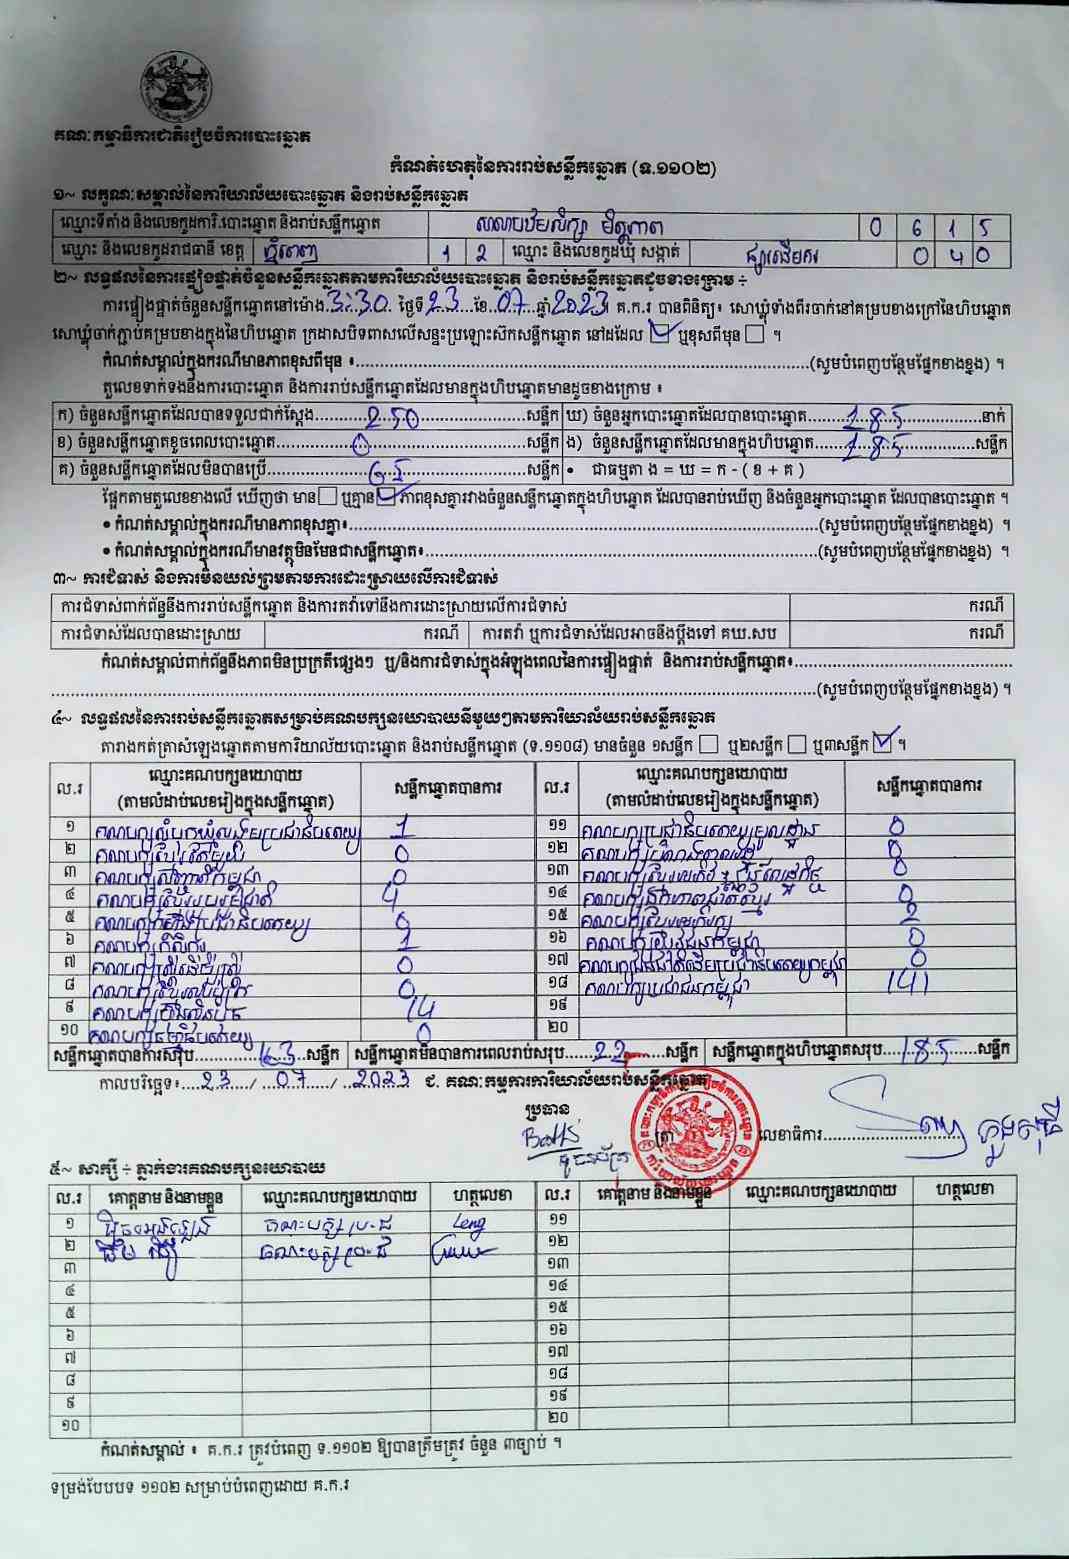 គណៈកម្មាធិការជាតិរៀបចំការបោះឆ្នោត
កំណត់ហេតុនៃការរាប់សន្លឹកឆ្នោត (ទ.១១០២)
១~ លក្ខណៈសម្គាល់នៃការិយាល័យបោះឆ្នោត និងរាប់សន្លឹកឆ្នោត
ឈ្មោះទីតាំង និងលេខកូដការិ.បោះឆ្នោត និងរាប់សន្លឹកឆ្នោត មិត្តភាព 0 6 1 5
ឈ្មោះ និងលេខកូដរាជធានី ខេត្ត ភ្នំពេញ 1 2 ឈ្មោះ និងលេខកូដឃុំ សង្កាត់ ផ្សារដើមគរ 0 4 0
២~ លទ្ធផលនៃការផ្ទៀងផ្ទាត់ចំនួនសន្លឹកឆ្នោតតាមការិយាល័យបោះឆ្នោត និងរាប់សន្លឹកឆ្នោតដូចខាងក្រោម ÷
ការផ្ទៀងផ្ទាត់ចំនួនសន្លឹកឆ្នោតនៅម៉ោង 3:30 ថ្ងៃទី 23 ខែ 07 ឆ្នាំ 2023 គ.ក.រ បានពិនិត្យ៖ សោឃ្លុំទាំងពីរចាក់នៅគម្របខាងក្រៅនៃហិបឆ្នោត
សោឃ្លុំចាក់ភ្ជាប់គម្របខាងក្នុងនៃហិបឆ្នោត ក្រដាសបិទពាសលើសន្ទះប្រឡោះស៊កសន្លឹកឆ្នោត នៅដដែល ☑ ឬខុសពីមុន ☐ ។
កំណត់សម្គាល់ក្នុងករណីមានភាពខុសពីមុន ៖ (សូមបំពេញបន្ថែមផ្នែកខាងខ្នង) ។
តួលេខទាក់ទងនឹងការបោះឆ្នោត និងការរាប់សន្លឹកឆ្នោតដែលមានក្នុងហិបឆ្នោតមានដូចខាងក្រោម ៖
ក) ចំនួនសន្លឹកឆ្នោតដែលបានទទួលជាក់ស្តែង 250 សន្លឹក ឃ) ចំនួនអ្នកបោះឆ្នោតដែលបានបោះឆ្នោត 185 នាក់
ខ) ចំនួនសន្លឹកឆ្នោតខូចពេលបោះឆ្នោត 0 សន្លឹក ង) ចំនួនសន្លឹកឆ្នោតដែលមានក្នុងហិបឆ្នោត 185 សន្លឹក
គ) ចំនួនសន្លឹកឆ្នោតដែលមិនបានប្រើ 65 សន្លឹក • ជាធម្មតា ង = ឃ = ក - ( ខ + គ )
ផ្អែកតាមតួលេខខាងលើ ឃើញថា មាន ☐ ឬគ្មាន ☑ ភាពខុសគ្នារវាងចំនួនសន្លឹកឆ្នោតក្នុងហិបឆ្នោត ដែលបានរាប់ឃើញ និងចំនួនអ្នកបោះឆ្នោត ដែលបានបោះឆ្នោត ។
• កំណត់សម្គាល់ក្នុងករណីមានភាពខុសគ្នា៖ (សូមបំពេញបន្ថែមផ្នែកខាងខ្នង) ។
• កំណត់សម្គាល់ក្នុងករណីមានវត្ថុមិនមែនជាសន្លឹកឆ្នោត៖ (សូមបំពេញបន្ថែមផ្នែកខាងខ្នង) ។
៣~ ការជំទាស់ និងការមិនយល់ព្រមតាមការដោះស្រាយលើការជំទាស់
ការជំទាស់ពាក់ព័ន្ធនឹងការរាប់សន្លឹកឆ្នោត និងការតវ៉ាទៅនឹងការដោះស្រាយលើការជំទាស់ ករណី
ការជំទាស់ដែលបានដោះស្រាយ ករណី ការតវ៉ា ឬការជំទាស់ដែលអាចនឹងប្តឹងទៅ គឃ.សប ករណី
កំណត់សម្គាល់ពាក់ព័ន្ធនឹងភាពមិនប្រក្រតីផ្សេងៗ ឬ/និងការជំទាស់ក្នុងអំឡុងពេលនៃការផ្ទៀងផ្ទាត់ និងការរាប់សន្លឹកឆ្នោត៖
(សូមបំពេញបន្ថែមផ្នែកខាងខ្នង) ។
៤~ លទ្ធផលនៃការរាប់សន្លឹកឆ្នោតសម្រាប់គណបក្សនយោបាយនីមួយៗតាមការិយាល័យរាប់សន្លឹកឆ្នោត
តារាងកត់ត្រាសំឡេងឆ្នោតតាមការិយាល័យបោះឆ្នោត និងរាប់សន្លឹកឆ្នោត (ទ.១១០៨) មានចំនួន ១សន្លឹក ☐ ឬ២សន្លឹក ☐ ឬ៣សន្លឹក ☑ ។
ល.រ ឈ្មោះគណបក្សនយោបាយ (តាមលំដាប់លេខរៀងក្នុងសន្លឹកឆ្នោត) សន្លឹកឆ្នោតបានការ ល.រ ឈ្មោះគណបក្សនយោបាយ (តាមលំដាប់លេខរៀងក្នុងសន្លឹកឆ្នោត) សន្លឹកឆ្នោតបានការ
១ គណបក្សសំបុកឃ្មុំសង្គមប្រជាធិបតេយ្យ 1 ១១ គណបក្សប្រជាធិបតេយ្យមូលដ្ឋាន 0
២ គណបក្សខ្មែរតែមួយ 0 ១២ 0
៣ គណបក្ស 0 ១៣ គណបក្ស 0
៤ គណបក្ស 4 ១៤ គណបក្ស 0
៥ គណបក្ស ប្រជាធិបតេយ្យ 0 ១៥ គណបក្សខ្មែរ 2
៦ គណបក្សកសិករ 1 ១៦ គណបក្ស 0
៧ គណបក្សស្ត្រីដើម្បីស្ត្រី 0 ១៧ គណបក្ស 0
៨ គណបក្ស 0 ១៨ គណបក្សប្រជាជនកម្ពុជា 141
៩ គណបក្សហ៊្វុនស៊ិនប៉ិច 14 ១៩
១០ គណបក្សធម្មាធិបតេយ្យ 0 ២០
សន្លឹកឆ្នោតបានការសរុប 163 សន្លឹក សន្លឹកឆ្នោតមិនបានការពេលរាប់សរុប 22 សន្លឹក សន្លឹកឆ្នោតក្នុងហិបឆ្នោតសរុប 185 សន្លឹក
កាលបរិច្ឆេទ៖ 23 / 07 / 2023 ជ. គណៈកម្មការការិយាល័យរាប់សន្លឹកឆ្នោត
ប្រធាន
(ត្រា) លេខាធិការ
៥~ សាក្សី ÷ ភ្នាក់ងារគណបក្សនយោបាយ
ល.រ គោត្តនាម និងនាមខ្លួន ឈ្មោះគណបក្សនយោបាយ ហត្ថលេខា ល.រ គោត្តនាម និងនាមខ្លួន ឈ្មោះគណបក្សនយោបាយ ហត្ថលេខា
១ គណៈបក្ស ប្រ.ជ Leng ១១
២ គណៈបក្ស ប្រ.ជ ១២
៣ ១៣
៤ ១៤
៥ ១៥
៦ ១៦
៧ ១៧
៨ ១៨
៩ ១៩
១០ ២០
កំណត់សម្គាល់ ៖ គ.ក.រ ត្រូវបំពេញ ទ.១១០២ ឱ្យបានត្រឹមត្រូវ ចំនួន ៣ច្បាប់ ។
ទម្រង់បែបបទ ១១០២ សម្រាប់បំពេញដោយ គ.ក.រ